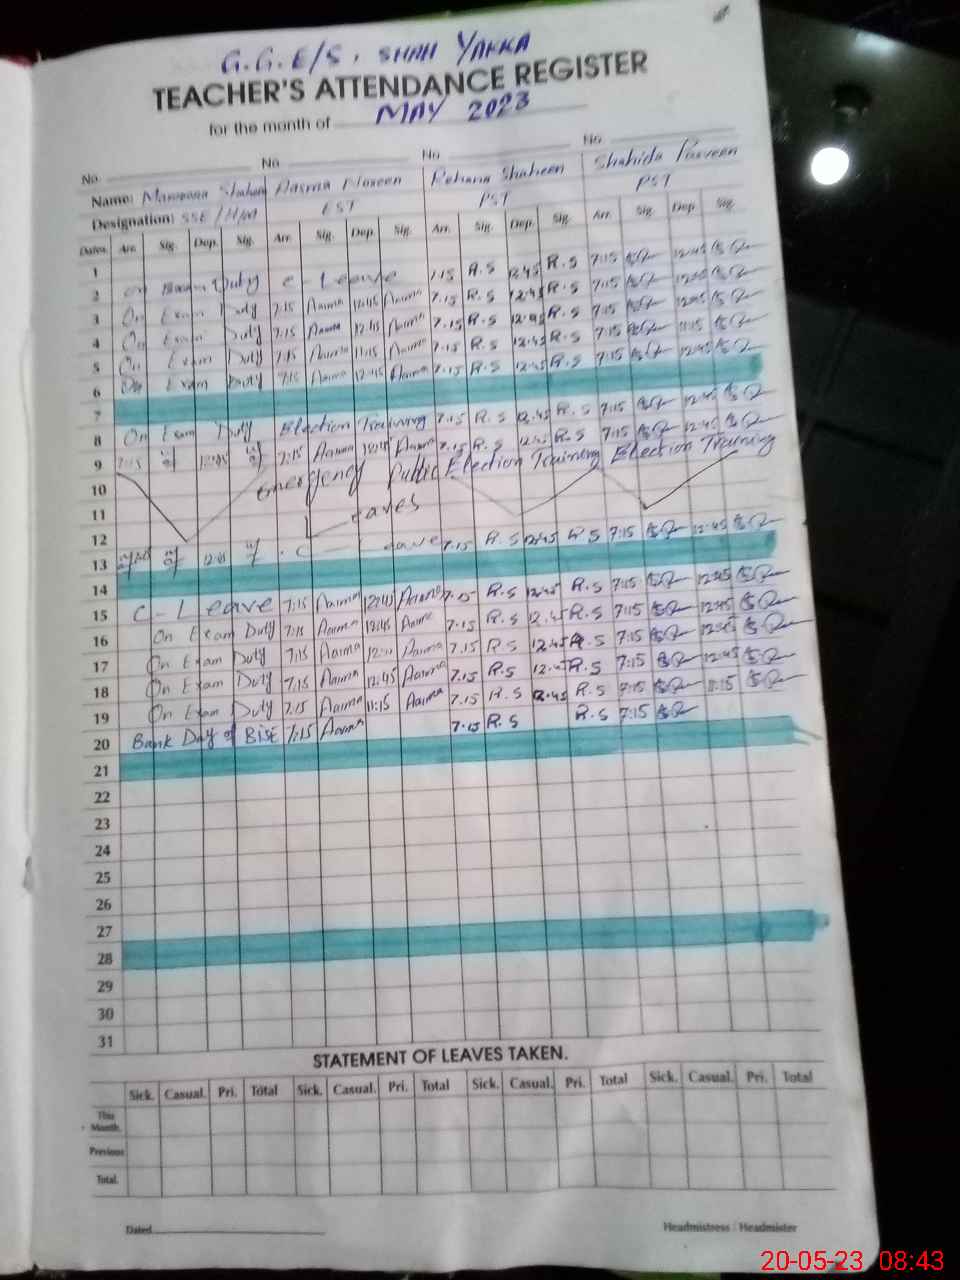 G.G.E/S, SHAH YAKKA
TEACHER'S ATTENDANCE REGISTER
for the month of MAY 2023
No. No. No. No.
Name: Shaheen Aasma Noreen Rehana Shaheen Shahida Parveen
Designation: SSE/H/M EST PST PST
Dates Arr. Sig. Dep. Sig. Arr. Sig. Dep. Sig. Arr. Sig. Dep. Sig. Arr. Sig. Dep. Sig.
1
2 on Duty c-Leave 7.15 R.S 12.45 R.S 7:15 12:45
3 On Exam Duty 7:15 Aasma 12:45 Aasma 7.15 R.S 12.45 R.S 7:15 12:45
4 On Exam Duty 7:15 Aasma 12:45 Aasma 7.15 R.S 12.45 R.S 7:15 12:45
5 On Exam Duty 7:15 Aasma 11:15 Aasma 7.15 R.S 12.45 R.S 7:15 11:15
6 On Exam Duty 7:15 Aasma 12:45 Aasma 7.15 R.S 12.45 R.S 7:15 12:45
7
8 On Exam Duty Election Training 7.15 R.S 12.45 R.S 7:15 12:45
9 7:15 12:45 7:15 Aasma 12:45 Aasma 7.15 R.S 12.45 R.S 7:15 12:45
10 Emergency Public Election Training Election Training
11 Leaves
12
13 12:45 C Leave 7.15 R.S 12.45 R.S 7:15 12:45
14
15 C-Leave 7:15 Aasma 12:45 Aasma 7.15 R.S 12.45 R.S 7:15 12:45
16 On Exam Duty 7:15 Aasma 12:45 Aasma 7.15 R.S 12.45 R.S 7:15 12:45
17 On Exam Duty 7:15 Aasma Aasma 7.15 R.S 12.45 R.S 7:15 12:45
18 On Exam Duty 7:15 Aasma 12:45 Aasma 7.15 R.S 12.45 R.S 7:15 12:45
19 On Exam Duty 7:15 Aasma 11:15 Aasma 7.15 R.S 12.45 R.S 7:15 11:15
20 Bank Day of BISE 7:15 Aasma 7.15 R.S R.S 7:15
21
22
23
24
25
26
27
28
29
30
31
STATEMENT OF LEAVES TAKEN.
Sick. Casual. Pri. Total Sick. Casual. Pri. Total Sick. Casual. Pri. Total Sick. Casual. Pri. Total
This Month.
Previous
Total.
Dated Headmistress / Headmister
20-05-23 08:43